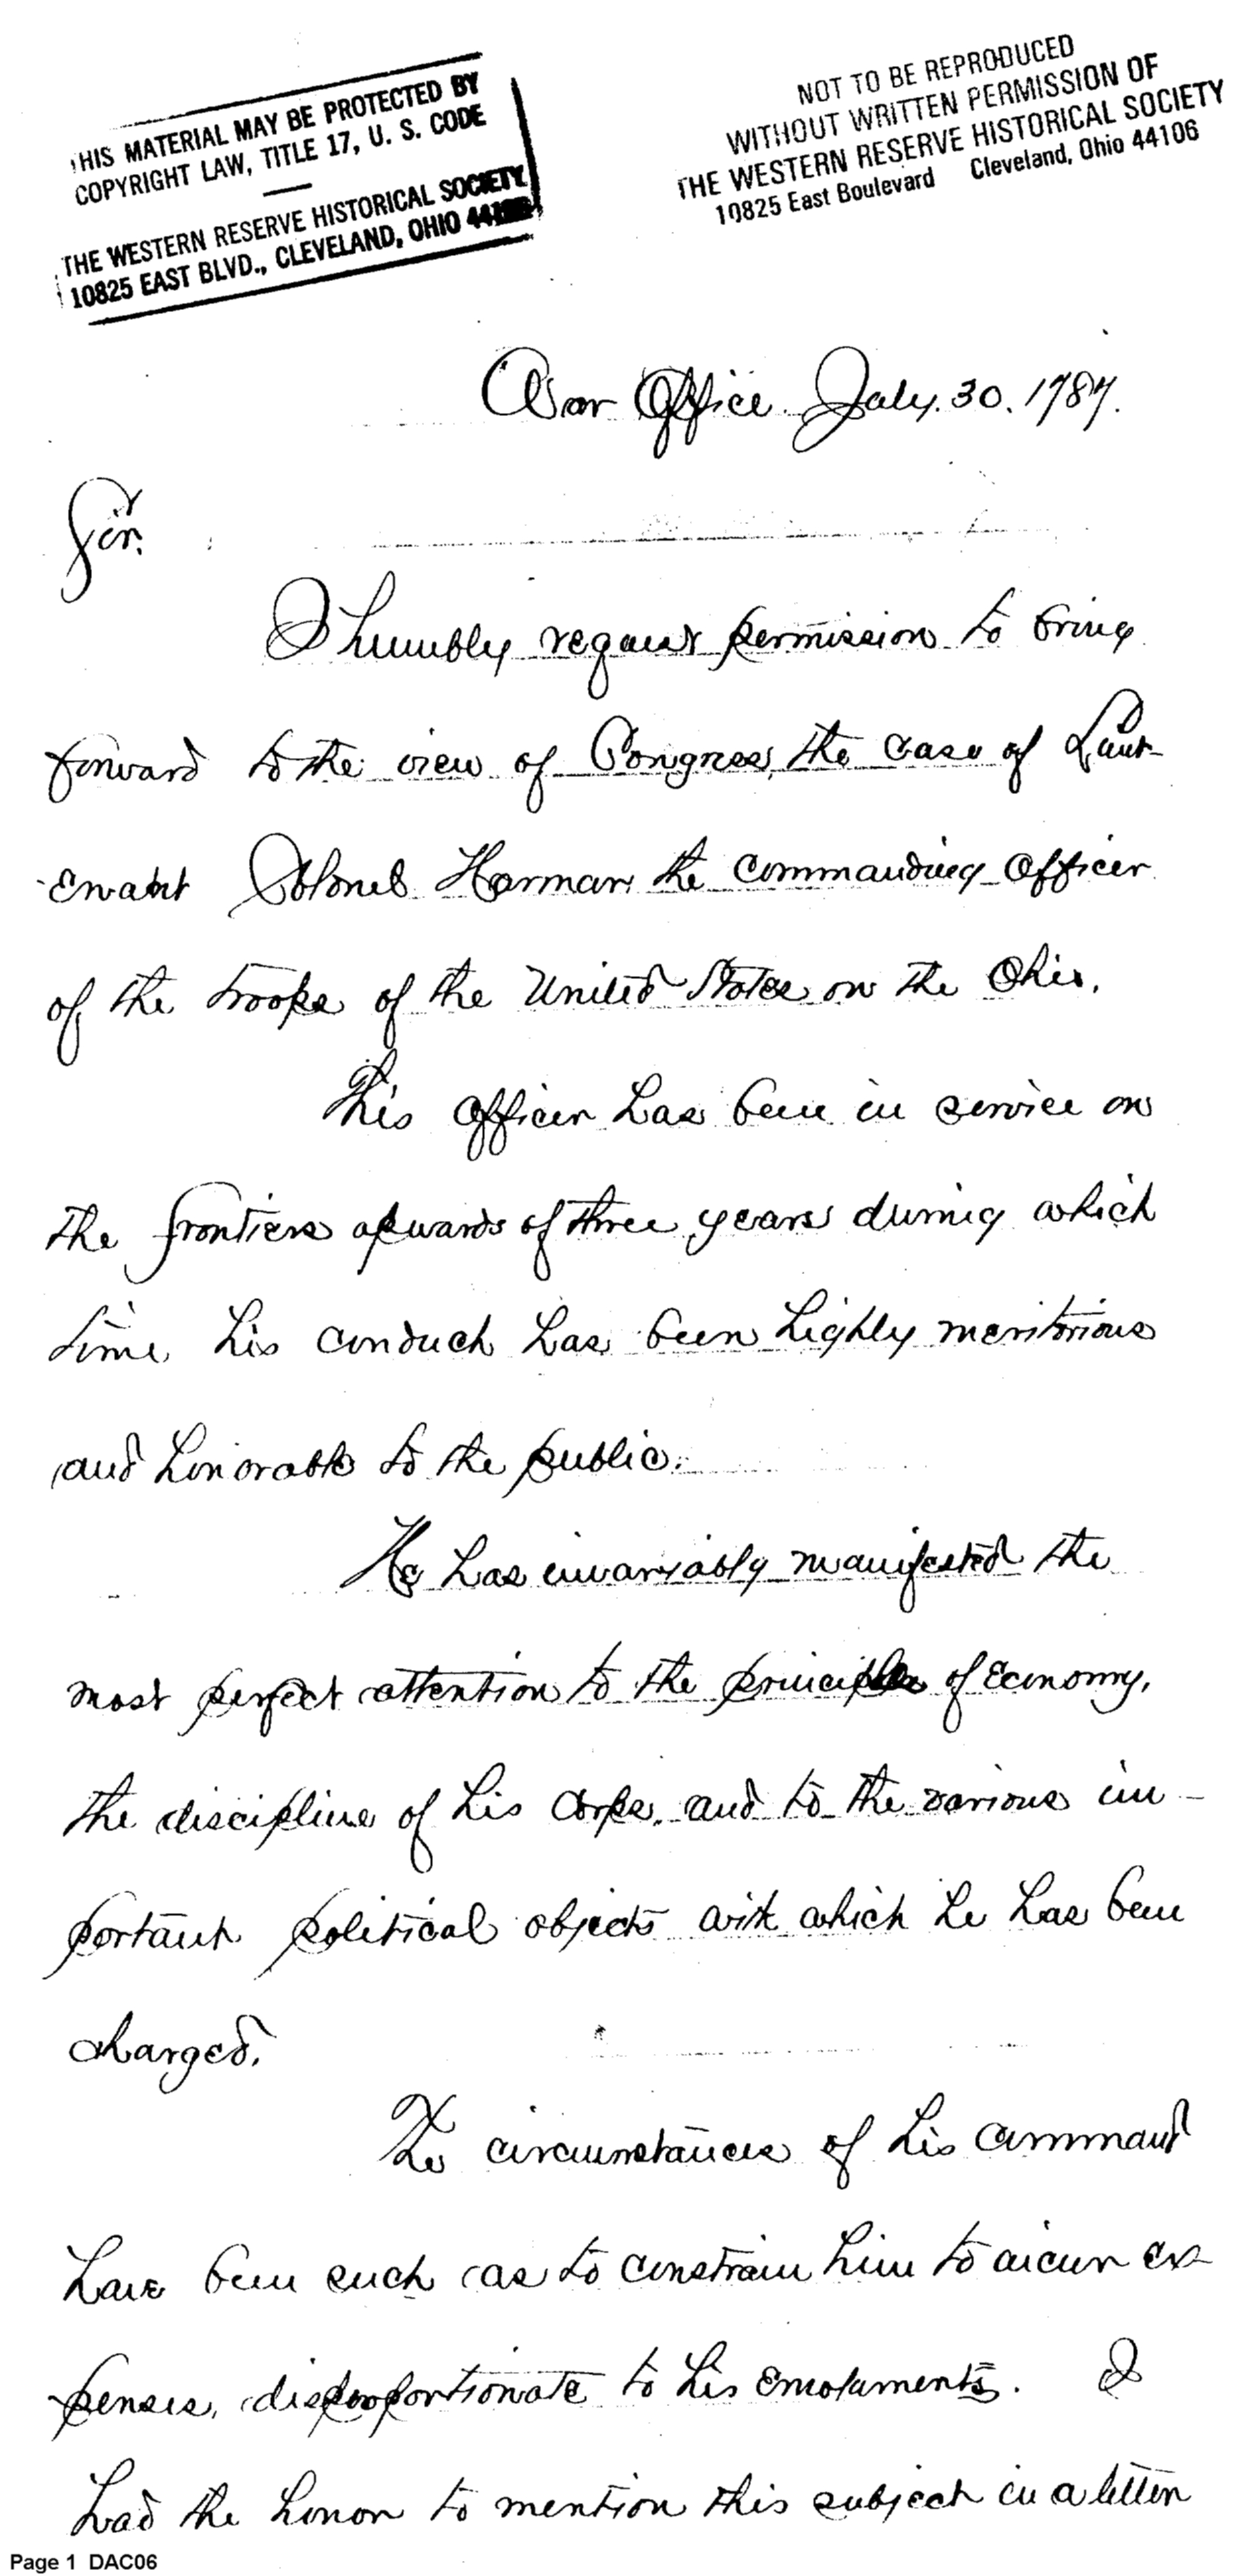 THIS MATERIAL MAY BE PROTECTED BY
COPYRIGHT LAW, TITLE 17, U. S. CODE
THE WESTERN RESERVE HISTORICAL SOCIETY
10825 EAST BLVD., CLEVELAND, OHIO 44106
NOT TO BE REPRODUCED
WITHOUT WRITTEN PERMISSION OF
THE WESTERN RESERVE HISTORICAL SOCIETY
10825 East Boulevard Cleveland, Ohio 44106
War Office July. 30. 1787.
Sir.
I humbly request permission to bring
forward to the view of Congress, the case of Lieut-
enant Colonel Harmar the commanding Officer
of the troops of the United States on the Ohio.
This Officer has been in service on
the frontiers upwards of three years during which
time his conduct has been highly meritorious
and honorable to the public.
He has invariably manifested the
most perfect attention to the principles of Economy,
the discipline of his Corps, and to the various im-
portant political objects with which he has been
charged.
The circumstances of his command
have been such as to constrain him to incur ex-
penses, disproportionate to his emoluments. I
had the honor to mention this subject in a letter
Page 1 DAC06